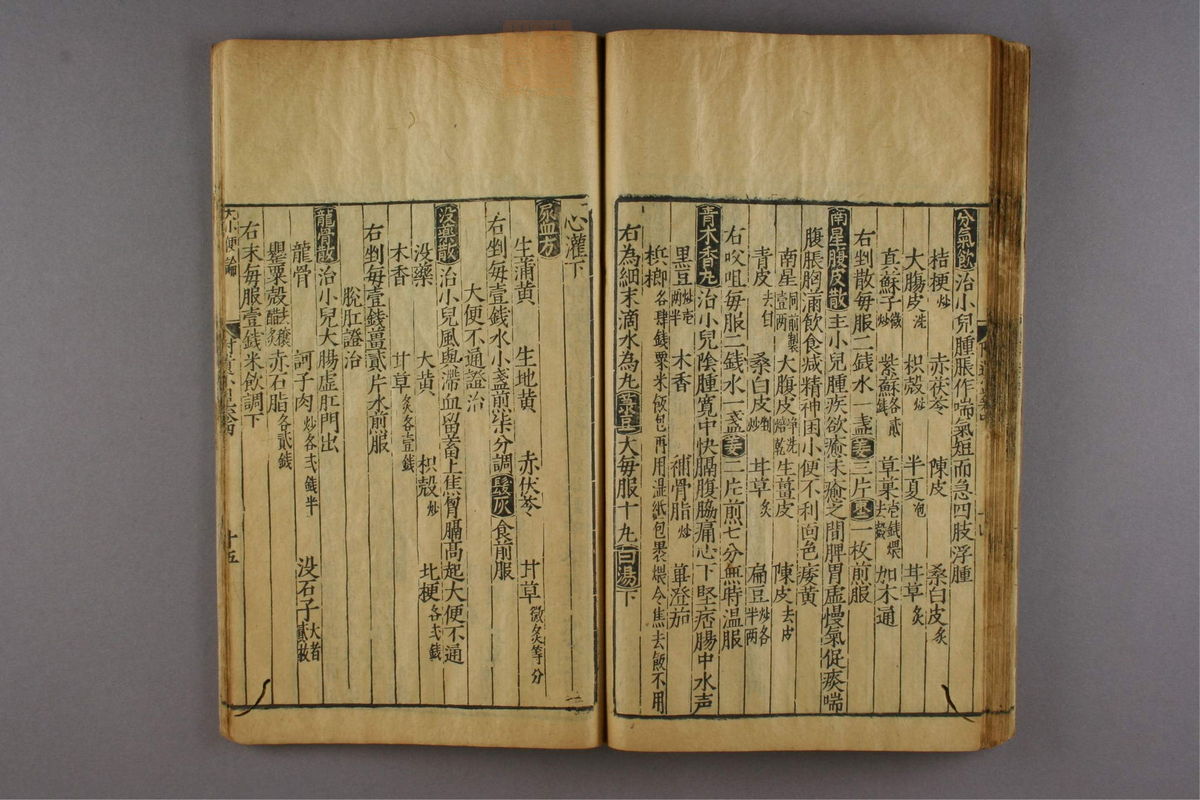 分氣飲治小兒腫脹作喘氣短而急四肢浮腫
桔梗炒 赤茯苓 陳皮 桑白皮炙
大腸皮洗 枳殼炒 半夏泡 甘草炙
真蘇子微炒 紫蘇各貳錢 草菓壹錢煨去殼 加木通
右剉散每服二錢水一盞姜三片棗一枚煎服
南星腹皮散主小兒腫疾欲瘉未瘉之間脾胃虛慢氣促痰喘
腹脹胸滿飲食减精神困小便不利面色痿黃
南星同前製壹兩 大腹皮淨洗焙乾 生薑皮 陳皮去皮
青皮去白 桑白皮剉炒 甘草炙 扁豆炒各半兩
右㕮咀每服二錢水一盞姜二片煎七分無時温服
青木香丸治小兒陰腫寛中快膈腹脇痛心下堅痞腸中水声
黑豆炒壱兩半 木香 補骨脂炒 蓽澄茄
檳榔各肆錢粟米飯包再用湿紙包裹煨令焦去飯不用
右為細末滴水為丸菉豆大每服十丸白湯下
心灌下
尿血方
生蒲黄 生地黄 赤伏苓 甘草微炙等分
右剉每壹錢水小盞煎柒分調髮灰食前服
大便不通證治
没藥散治小兒風與滯血留蓄上焦胷膈高起大便不通
没藥 大黄 枳殼炒 北梗各弍錢
木香 甘草炙各壹錢
右剉每壹錢薑貳片水煎服
脫肛證治
龍骨散治小兒大腸虛肛門出
龍骨 訶子肉炒各弍錢半 没石子大者貳枚
罌粟殼去穰醋炙 赤石脂各貳錢
右末每服壹錢米飲調下
大小便論
十五